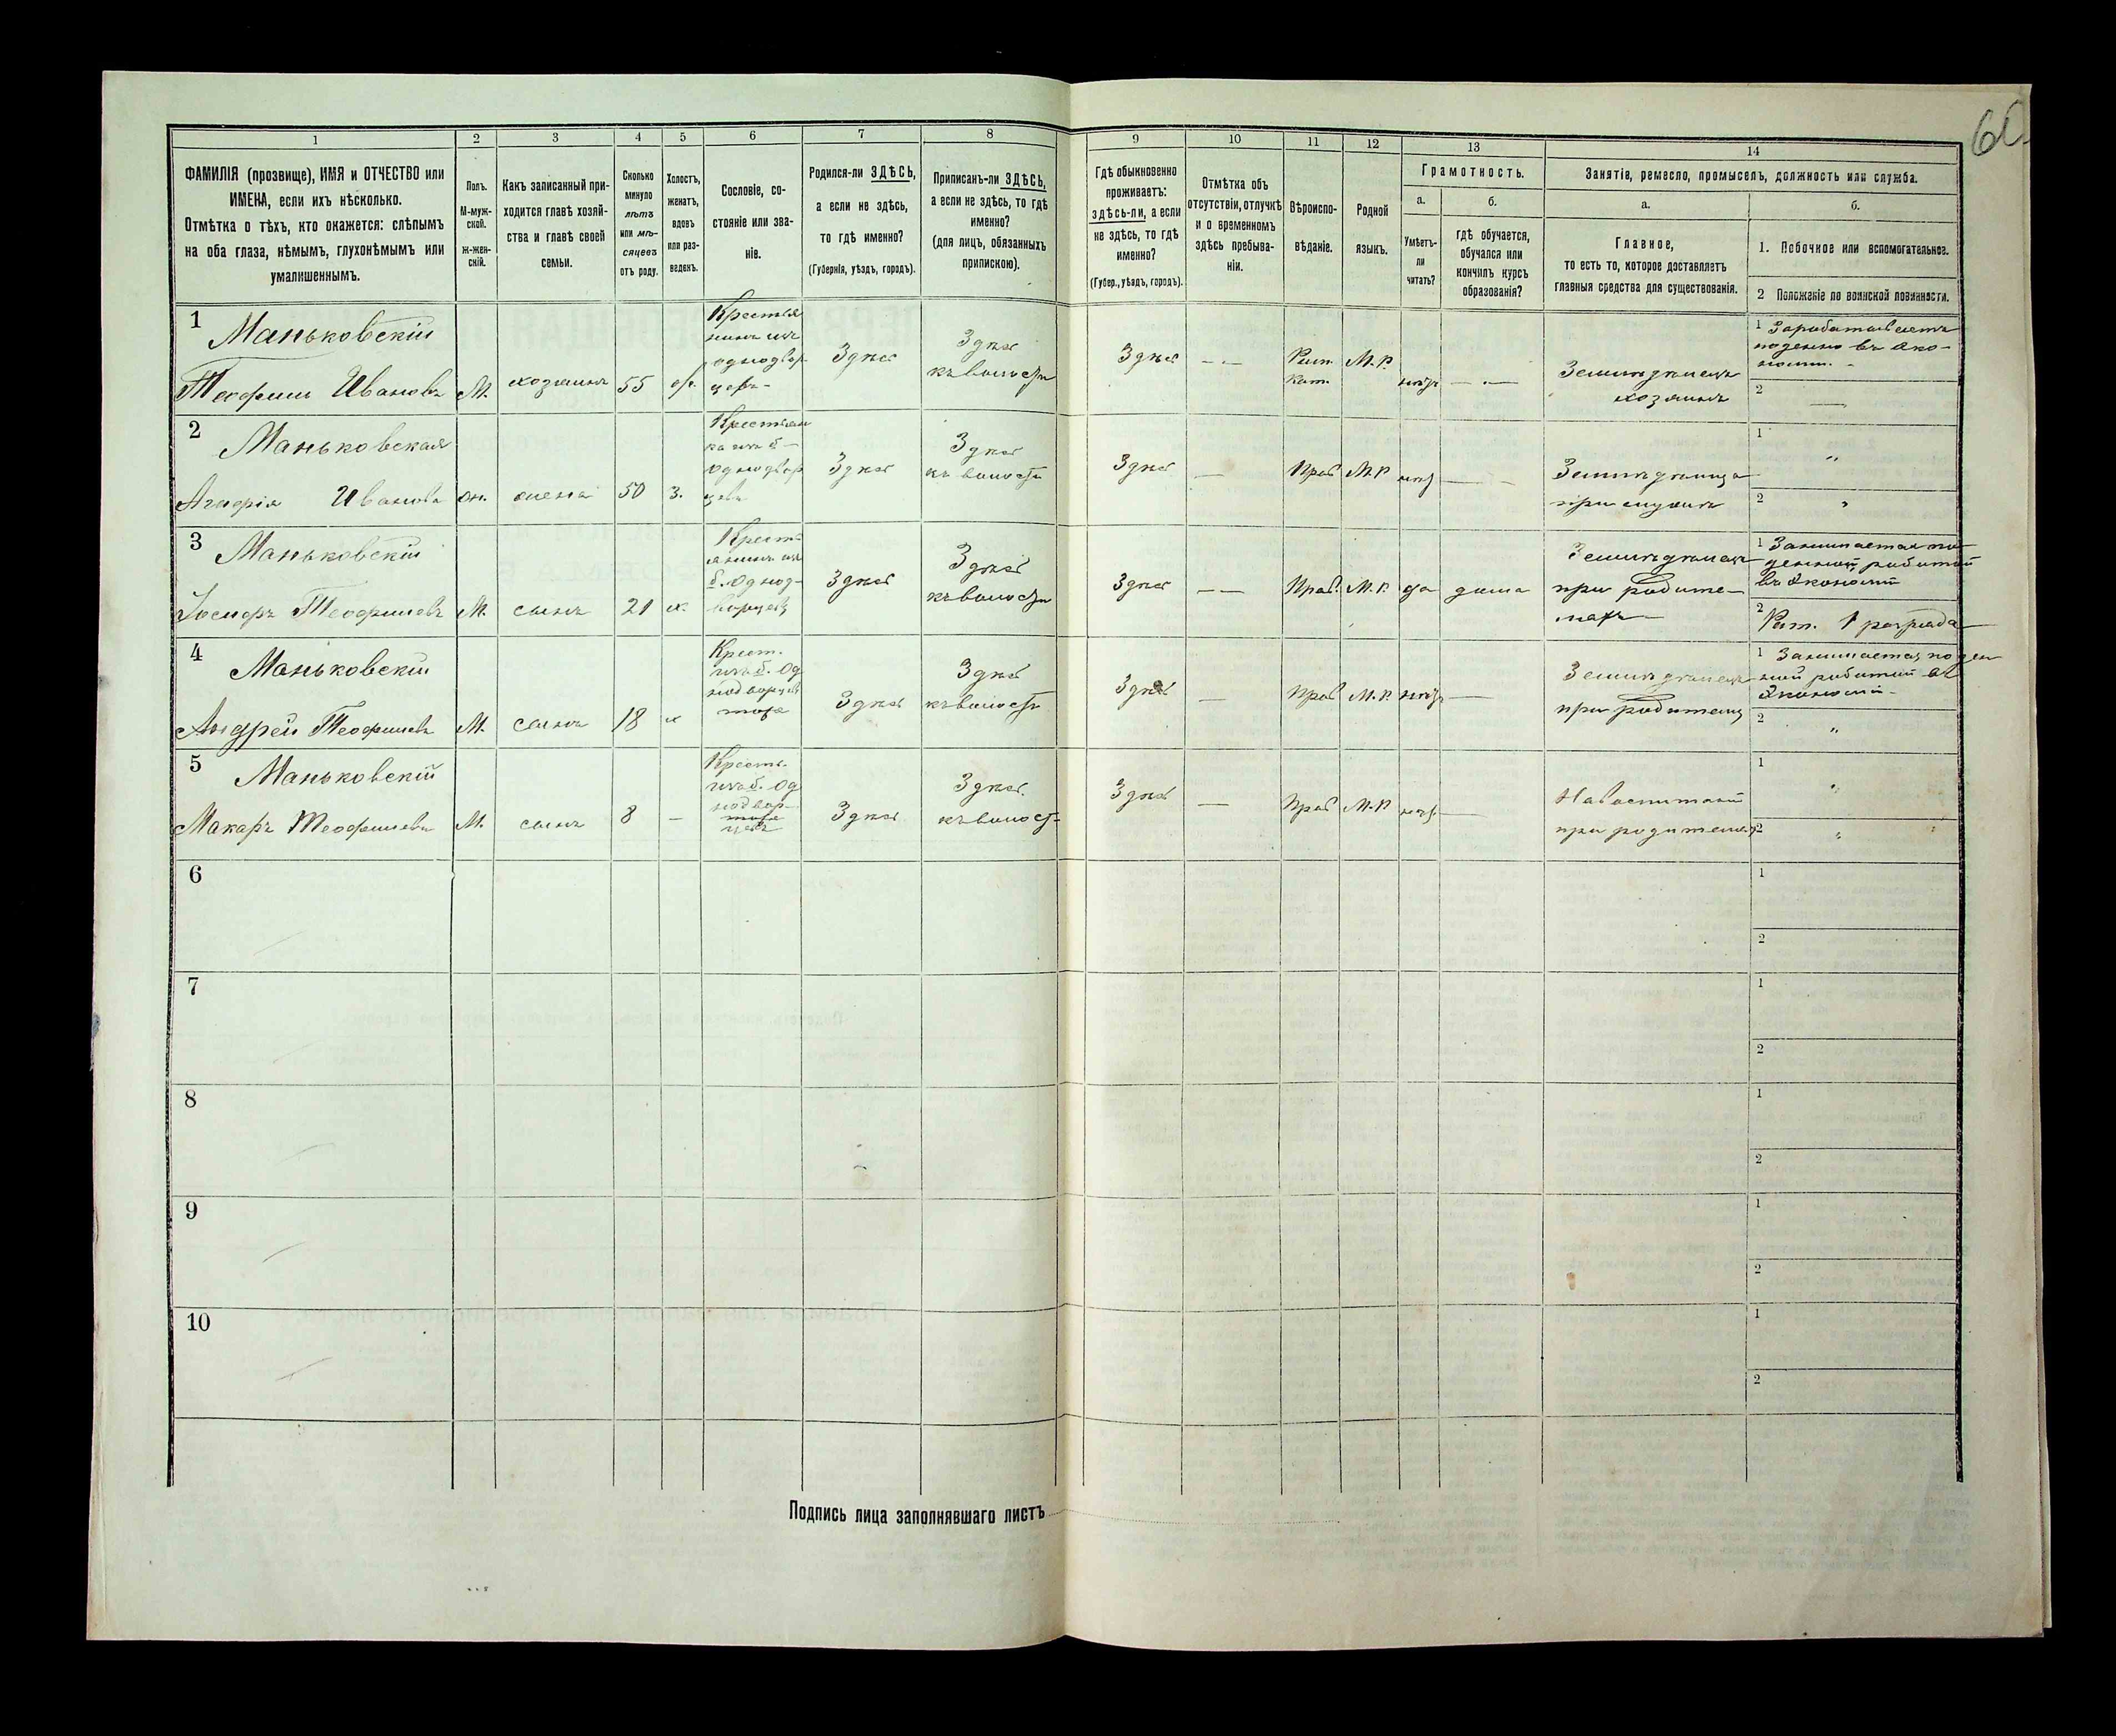 60
1 2 3 4 5 6 7 8 9 10 11 12 13 14
ФАМИЛІЯ (прозвище), ИМЯ и ОТЧЕСТВО или
ИМЕНА, если ихъ нѣсколько.
Отмѣтка о тѣхъ, кто окажется: слѣпымъ
на оба глаза, нѣмымъ, глухонѣмымъ или
умалишеннымъ.
Полъ.
М-муж-
ской.
Ж-жен-
скій.
Какъ записанный при-
ходится главѣ хозяй-
ства и главѣ своей
семьи.
Сколько
минуло
лѣтъ
или мѣ-
сяцевъ
отъ роду.
Холостъ,
женатъ,
вдовъ
или раз-
веденъ.
Сословіе, со-
стояніе или зва-
ніе.
Родился-ли ЗДѢСЬ,
а если не здѣсь,
то гдѣ именно?
(Губернія, уѣздъ, городъ).
Приписанъ-ли ЗДѢСЬ,
а если не здѣсь, то гдѣ
именно?
(для лицъ, обязанныхъ
припискою).
Гдѣ обыкновенно
проживаетъ:
здѣсь-ли, а если
не здѣсь, то гдѣ
именно?
(Губер., уѣздъ, городъ).
Отмѣтка объ
отсутствіи, отлучкѣ
и о временномъ
здѣсь пребыва-
ніи.
Вѣроиспо-
вѣданіе.
Родной
языкъ.
Грамотность.
а.
Умѣетъ-
ли
читать?
б.
гдѣ обучается,
обучался или
кончилъ курсъ
образованія?
Занятіе, ремесло, промыселъ, должность или служба.
а.
Главное,
то есть то, которое доставляетъ
главныя средства для существованія.
б.
1. Побочное или вспомогательное.
2 Положеніе по воинской повинности.
1
Маньковскій
Теофилъ Ивановъ
М.
хозяинъ
55
Крестья
нинъ изъ
однодвор
цевъ
Здѣсь
Здѣсь
къ волости
Здѣсь
Рим.
Кат.
М.Р.
нѣтъ
Земледѣлецъ
хозяинъ
1 Зарабатываетъ
поденно въ эко-
номіи.
2
2
Маньковская
Ивановна
Ж.
жена
50
З.
Крестьян
ка изъ б
однодвор
цевъ
Здѣсь
Здѣсь
къ волости
Здѣсь
Прав
М.Р
нѣтъ
Земледѣлица
при мужѣ
1 "
2 "
3
Маньковскій
Іосифъ Теофиловъ
М.
сынъ
21
х.
Крест-
янинъ изъ
б. однод-
ворцевъ
Здѣсь
Здѣсь
къ волости
Здѣсь
Прав.
М.Р.
да
дома
Земледѣлецъ
при родите-
ляхъ
1 Занимается по-
денной работой
въ экономіи
2 Рат. 1 разряда
4
Маньковскій
Андрей Теофиловъ
М.
сынъ
18
х
Крест.
изъ б. од
нодворцевъ
Здѣсь
Здѣсь
къ волости
Здѣсь
Прав
М.Р.
нѣтъ
Земледѣлецъ
при родителяхъ
1 Занимается поден
ной работой въ
экономіи
2 "
5
Маньковскій
Макаръ Теофиловъ
М.
сынъ
8
Крест.
изъ б. од
нодвор-
цевъ
Здѣсь
Здѣсь
къ волост-
Здѣсь
Прав
М.Р
нѣтъ
На воспитаніи
при родителяхъ
1 "
2 "
6
1
2
7
1
2
8
1
2
9
1
2
10
1
2
Подпись лица заполнявшаго листъ